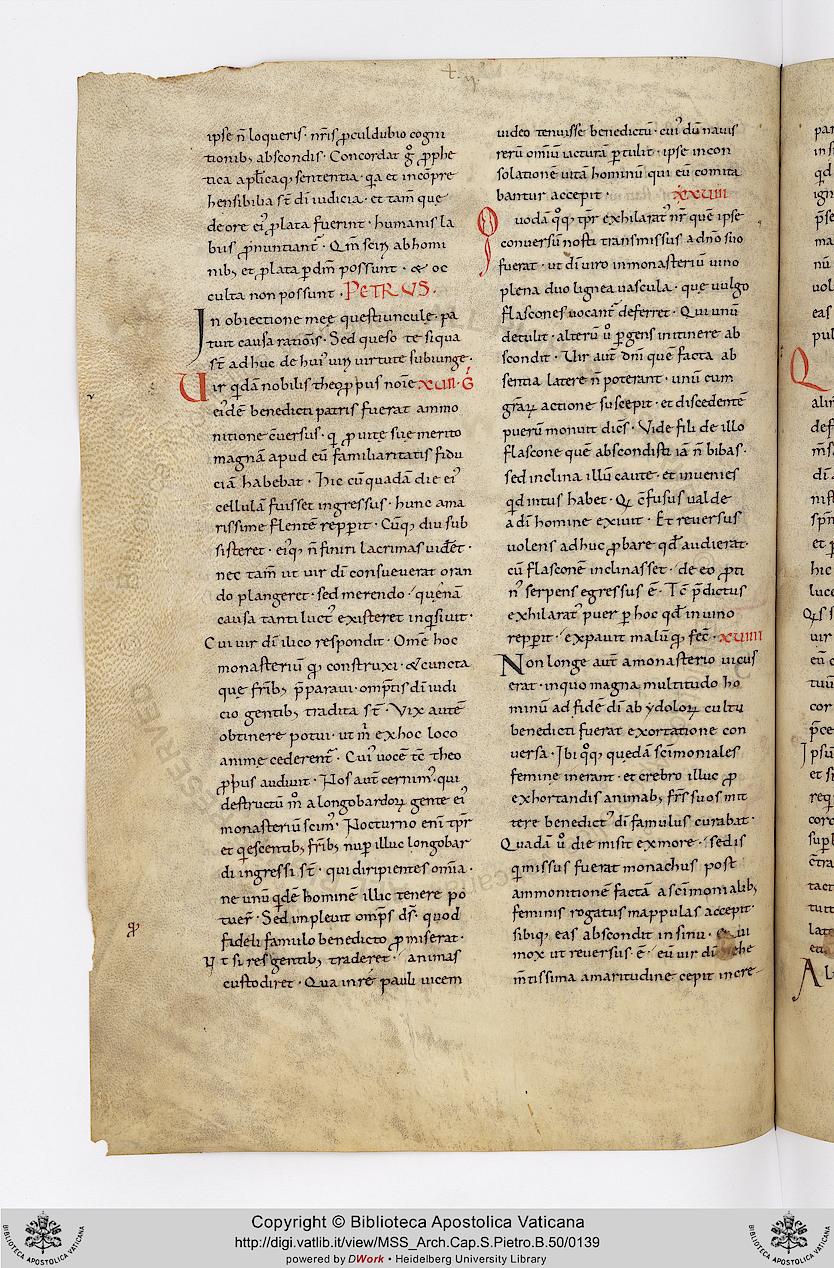 ipse n̄ loqueris · nr̄is ꝓculdubio cogni
tionib; abscondis · Concordat g̊ ꝓphe
tica apl̄icaq; sententia · q̄a et incōpre
hensibilia st̄ dī iudicia · et tam̄ que
de ore ei᾽ ꝓlata fuerint · humanis la
biis ꝓnuntiant᾽ · Qm̄ sciri ab homi
nib; et ꝓlata ꝑ dm̄ possunt · & oc
culta non possunt · PETRUS ·
In obiectione mee questiuncule · pa
tuit causa ratiōis · Sed queso te siqua
st̄ adhuc de hui᾽ uiri uirtute subiunge ·
Uir qidā nobilis theoꝓpus noīe xuii · G̅
ei᾽dē benedicti patris fuerat ammo
nitione c̄uersus · q̇ ꝓ uite sue merito
magnā apud eū familiaritatis fidu
ciā habebat · Hic cū quadā die ei᾽
cellulā fuisset ingressus · hunc ama
rissime flentē repꝑit · Cūq; diu sub
sisteret · eiq; n̄ finiri lacrimas uidēt ·
nec tam̄ ut uir dī consueuerat oran
do plangeret · sed merendo · quēnā
causa tanti luct᾽ existeret inqsiuit ·
Cui uir dī ilico respondit · Om̄e hoc
monasteriū q̊ construxi · & cuncta
que fr̄ib; p̄paraui · omp̄tis dī iudi
cio gentib; tradita st̄ · Vix autē
obtinere potui · ut m̄ ex hoc loco
anime cederent᾽ · Cui᾽ uocē tc̄ theo
ꝓpus audiuit · Nos aut̄ cernim᾽ · qui
destructū m̊ a longobardoꝝ gente ei᾽
monasteriū scim᾽ · Nocturno eni tp̄r
et qescentib; fr̄ib; nuꝑ illuc longobar
di ingressi st̄ · qui diripientes om̄ia ·
ne unū qdē hominē illic tenere po
tuer̄ · Sed impleuit omp̄s ds̄ · quod
fideli famulo benedicto ꝓmiserat ·
ut si res gentib; traderet · animas
custodiret · Qua in re pauli uicem
uideo tenuisse benedictū · cui᾽ dū nauis
rerū omiū iacturā ꝑtulit · ipse incon
solatione uitā hominū qui eū comita
bantur accepit · xxuiii
Quodā q̊q; tp̄r exhilarat᾽ nr̄ quē ipse
conuersū nosti transmissus a dn̄o suo
fuerat · ut dī uiro in monasteriū uino
plena duo lignea uascula · que uulgo
flascones uocant᾽ deferret · Qui unū
detulit · alterū ů ꝑgens in itinere ab
scondit · Uir aut̄ dn̄i quē facta ab
sentia latere n̄ poterant · unū cum
gr̄aꝝ actione suscepit · et discedentē
puerū monuit dic̄s · Vide fili de illo
flascone quē abscondisti iā n̄ bibas ·
sed inclina illū caute · et inuenies
qd intus habet · Qi c̄fusus ualde
a dī homine exiuit · Et reuersus
uolens adhuc ꝓbare qd̄ audierat ·
cū flasconē inclinasset · de eo ꝓti
n᾽ serpens egressus ē · Tc̄ p̄dictus
exhilarat᾽ puer ꝑ hoc qd̄ in uino
repꝑit · expauit malū q̊ fec̄ · xuiiii
Non longe aut̄ a monasterio uicus
erat · in quo magna multitudo ho
minū ad fidē dī ab ydoloꝝ cultu
benedicti fuerat exortatione con
uersa · Ibi q̊q; quedā sc̄imoniales
femine inerant · et crebro illuc ꝓ
exhortandis animab; fr̄s suos mit
tere benedict᾽ dī famulus curabat ·
Quadā ů die misit ex more · sed is
q̇ missus fuerat monachus post
ammonitionē factā a sc̄imonialib;
feminis rogatus mappulas accepit ·
sibiq; eas abscondit in sinu ·
mox ut reuersus · ē · eū uir dī uehe
m̄tissima amaritudine cepit incre-
Copyright © Biblioteca Apostolica Vaticana
http://digi.vatlib.it/view/MSS_Arch.Cap.S.Pietro.B.50/0139
powered by DWork • Heidelberg University Library
BIBLIOTECA APOSTOLICA VATICANA
BIBLIOTECA APOSTOLICA VATICANA